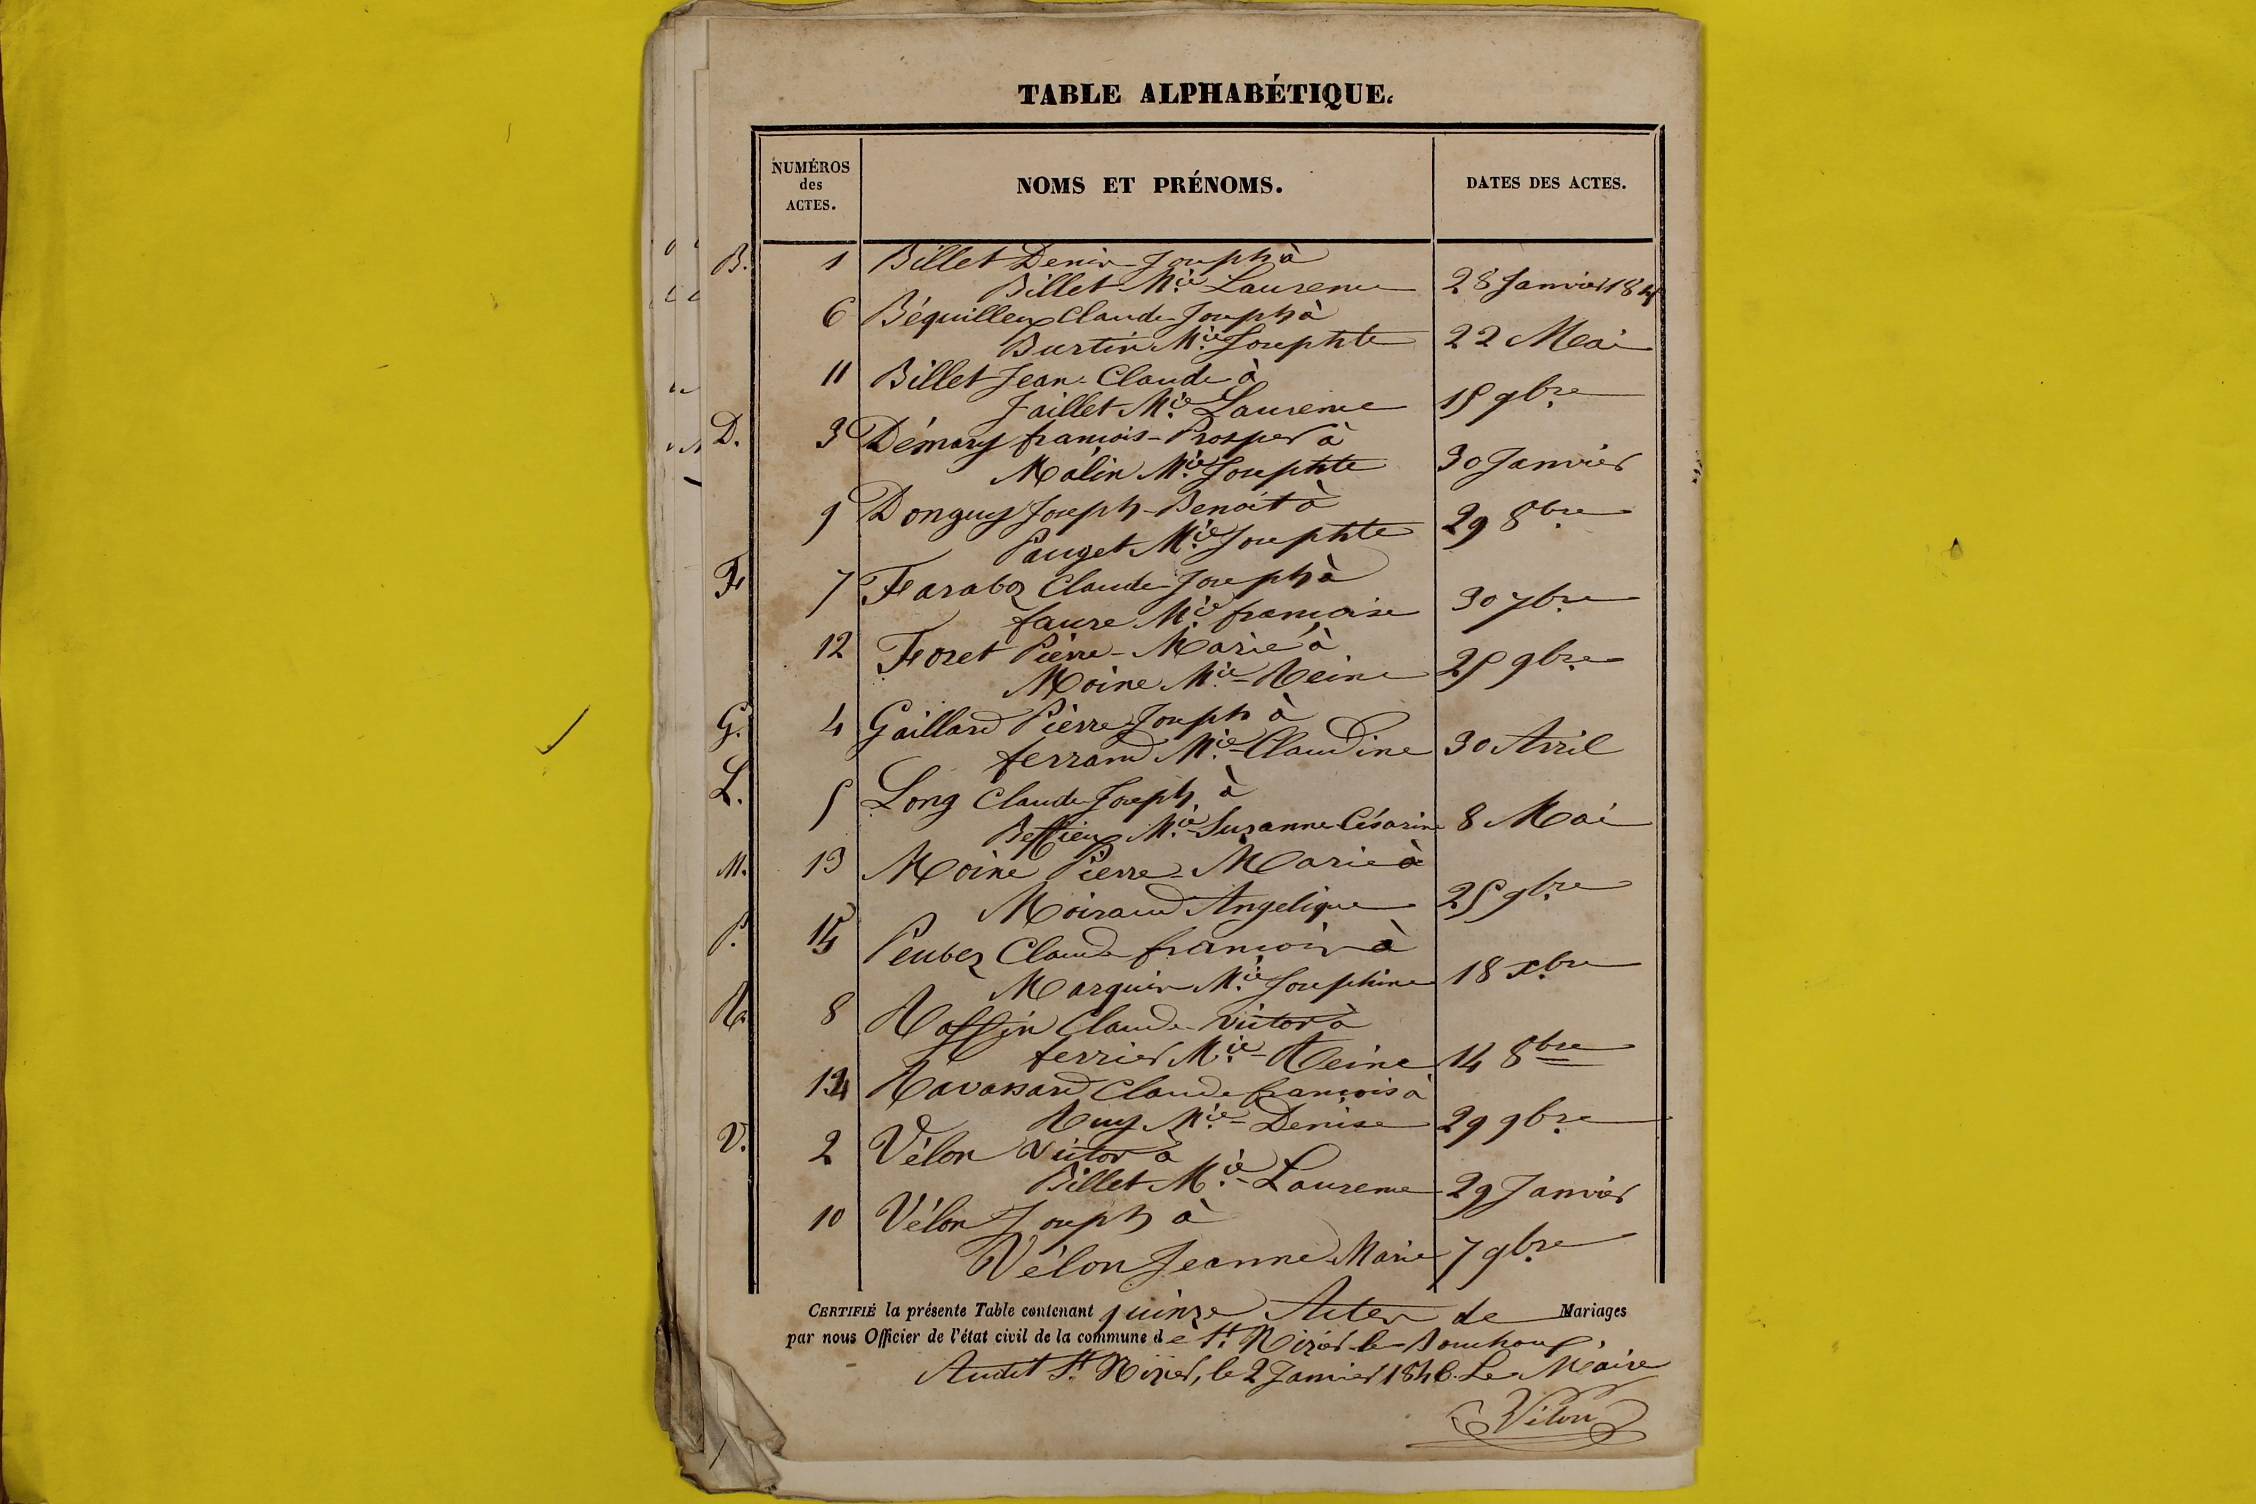 TABLE ALPHABÉTIQUE.
NUMÉROS des ACTES. NOMS ET PRÉNOMS. DATES DES ACTES.
B. 1 Billet Denis Joseph à
Billet M.ie Laurence 28 Janvier 184
6 Béquilleux Claude Joseph à
Burtin M.ie Josephte 22 Mai
11 Billet Jean-Claude à
Jaillet M.ie Laurence 15 9bre
D. 3 Démary françois-Prosper à
Mâlin M.ie Josephte 30 Janvier
9 Donguy Joseph-Benoit à
Pauget M.ie Josephte 29 8bre
F 7 Faraboz Claude Joseph à
faure M.ie françoise 30 7bre
12 Foret Pierre-Marie à
Moine M.ie-Reine 25 9bre
G. 4 Gaillard Pierre-Joseph à
ferrand M.ie-Claudine 30 Avril
L. 5 Long Claude Joseph à
M.ie Suzanne Césarine 8 Mai
M. 13 Moine Pierre-Marie à
Moiraud Angelique 25 9bre
P. 15 Peubez Claude françois à
Marguin M.ie Josephine 18 xbre
R. 8 Roffin Claude-Victor à
ferrier M.ie-Reine 14 8bre
14 Ravassard Claude françois à
Ruy M.ie-Denise 29 9bre
V. 2 Vélon Victor à
Billet M.ie-Laurence 29 Janvier
10 Vélon Joseph à
Vélon Jeanne Marie 7 9bre
CERTIFIÉ la présente Table contenant quinze Actes de Mariages
par nous Officier de l'état civil de la commune de St. Nizier-le-Bouchoux.
Audit St. Nizier, le 2 Janvier 1846. Le Maire
Vélon